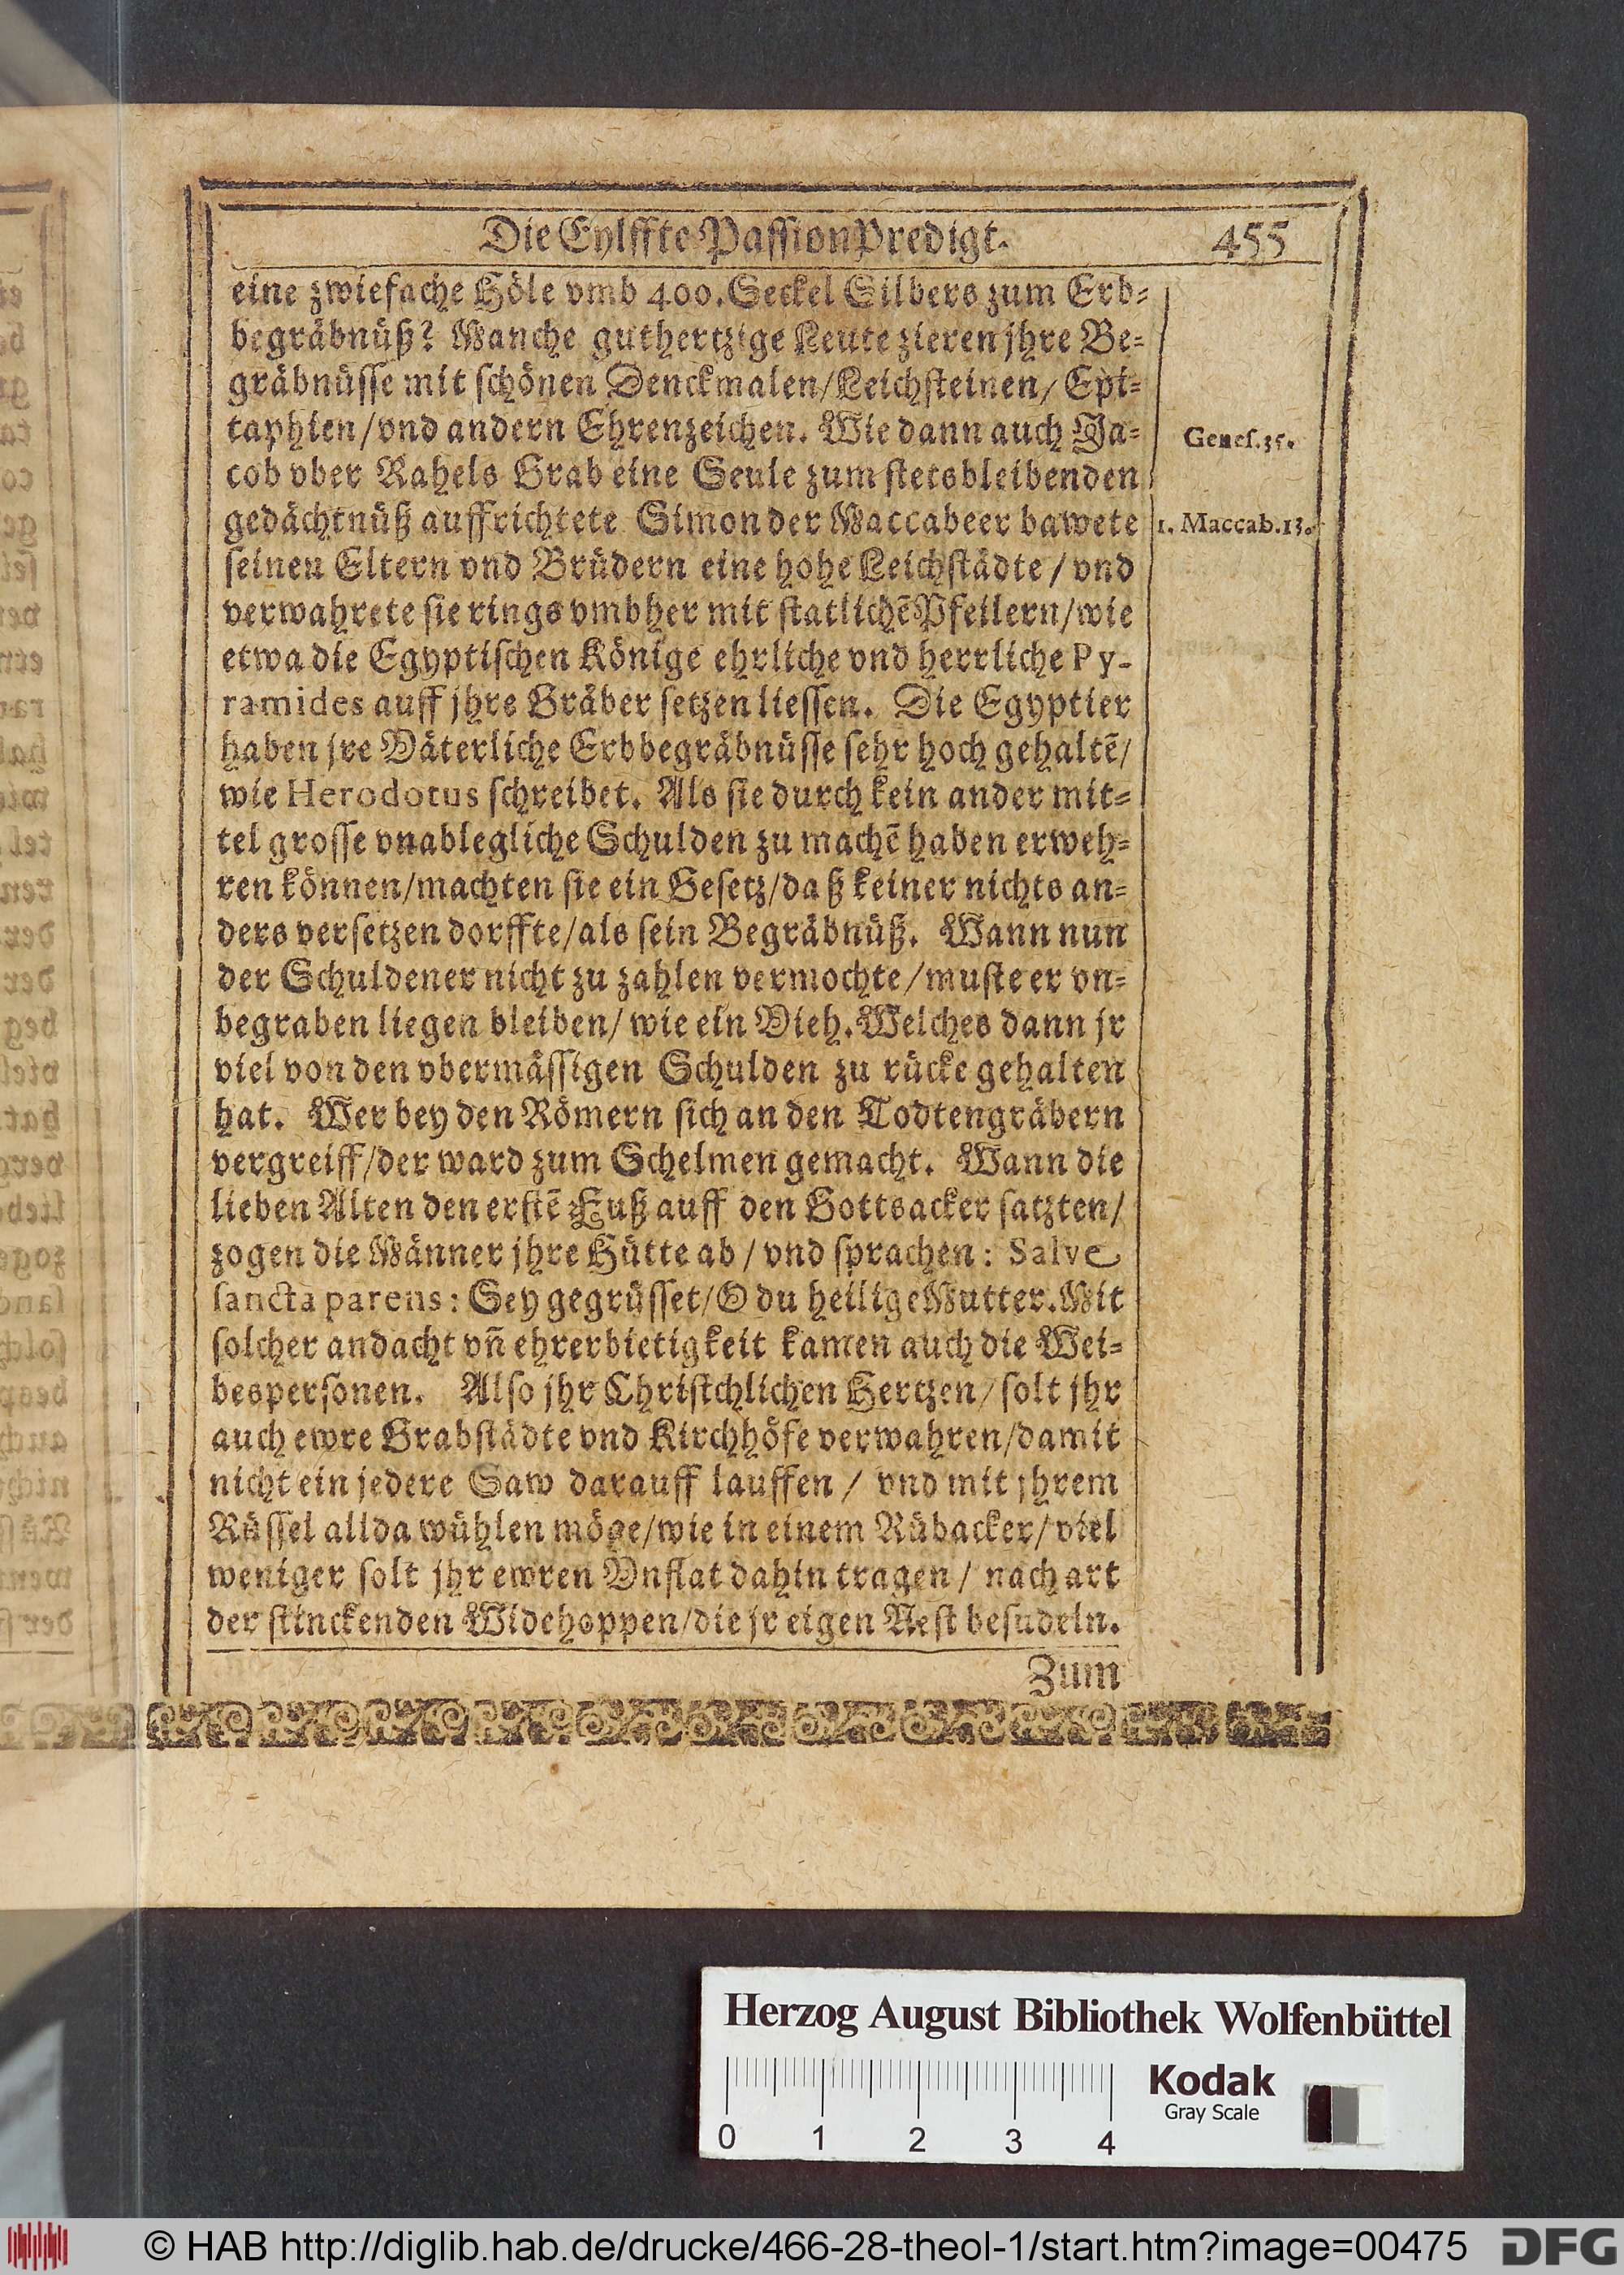 Die Eylffte PassionPredigt. 455
eine zwiefache Höle vmb 400. Seckel Silbers zum Erb-
begräbnüß? Manche guthertzige Leute zieren jhre Be-
gräbnüsse mit schönen Denckmalen/Leichsteinen/ Epi-
taphien/vnd andern Ehrenzeichen. Wie dann auch Ja-
Genes.35.
cob vber Rahels Grab eine Seule zum stetsbleibenden
gedächtnüß auffrichtete Simon der Maccabeer bawete
1. Maccab.13.
seinen Eltern vnd Brüdern eine hohe Leichstädte / vnd
verwahrete sie rings vmbher mit statlichẽ Pfeilern/wie
etwa die Egyptischen Könige ehrliche vnd herrliche Py-
ramides auff jhre Gräber setzen liessen. Die Egyptier
haben jre Väterliche Erbbegräbnüsse sehr hoch gehaltẽ/
wie Herodotus schreibet. Als sie durch kein ander mit-
tel grosse vnablegliche Schulden zu machẽ haben erweh-
ren können/machten sie ein Gesetz/daß keiner nichts an-
ders versetzen dorffte/als sein Begräbnüß. Wann nun
der Schuldener nicht zu zahlen vermochte/muste er vn-
begraben liegen bleiben/ wie ein Vieh. Welches dann jr
viel von den vbermässigen Schulden zu rücke gehalten
hat. Wer bey den Römern sich an den Todtengräbern
vergreiff/der ward zum Schelmen gemacht. Wann die
lieben Alten den erstẽ Fuß auff den Gottsacker satzten/
zogen die Männer jhre Hütte ab / vnd sprachen: Salve
sancta parens: Sey gegrüsset/O du heilige Mutter. Mit
solcher andacht vñ ehrerbietigkeit kamen auch die Wei-
bespersonen. Also jhr Christchlichen Hertzen/ solt jhr
auch ewre Grabstädte vnd Kirchhöfe verwahren/damit
nicht ein jedere Saw darauff lauffen / vnd mit jhrem
Rüssel allda wühlen möge/wie in einem Rübacker/ viel
weniger solt jhr ewren Vnflat dahin tragen / nach art
der stinckenden Widehoppen/die jr eigen Nest besudeln.
Zum
Herzog August Bibliothek Wolfenbüttel
Kodak
Gray Scale
0 1 2 3 4
© HAB http://diglib.hab.de/drucke/466-28-theol-1/start.htm?image=00475
DFG